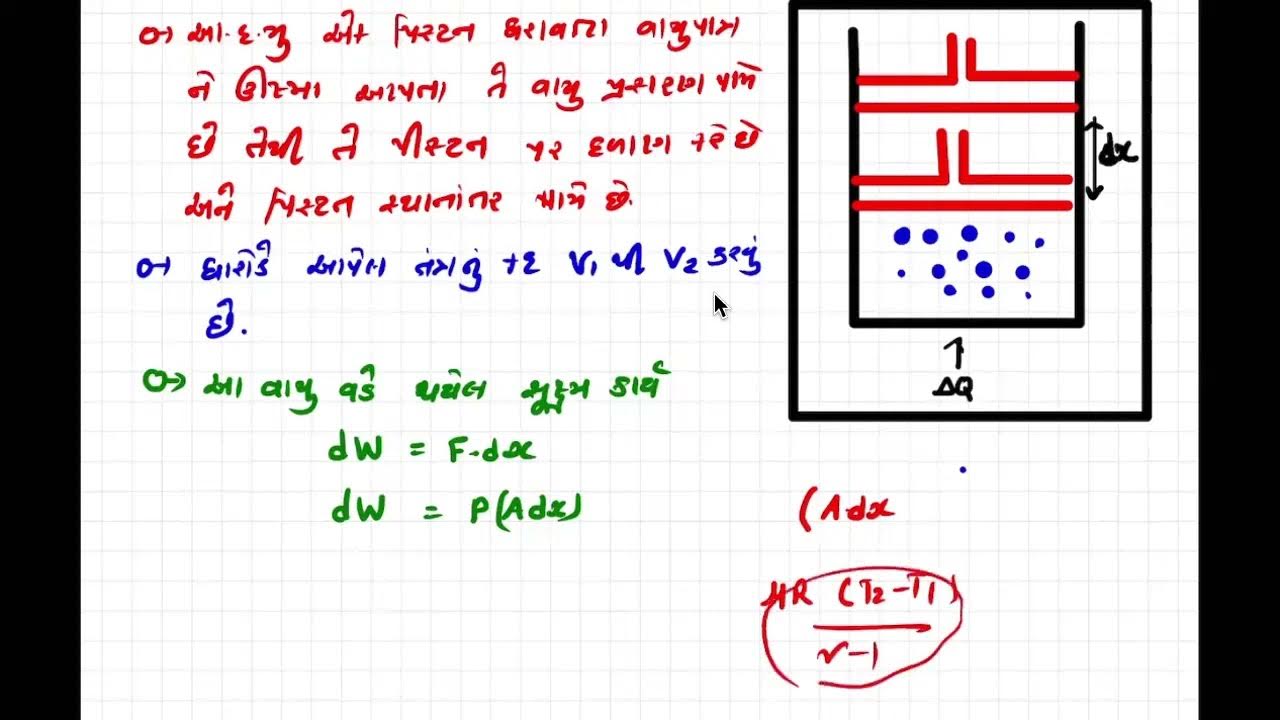 આ.દ.શુ એક પિસ્ટન ધરાવતા વાયુપાત્ર
ને ઊષ્મા આપતા તે વાયુ પ્રસરણ પામે
છે તેથી તે પીસ્ટન પર દબાણ કરે છે
અને પિસ્ટન સ્થાનાંતર પામે છે.
ધારોકે આપેલ તંત્રનું કદ V₁ થી V₂ કરવું
છે.
આ વાયુ વડે થયેલ સૂક્ષ્મ કાર્ય
dW = F·dx
dW = P(Adx)
dx
ΔQ
(Adx
μR (T₂-T₁)
γ-1